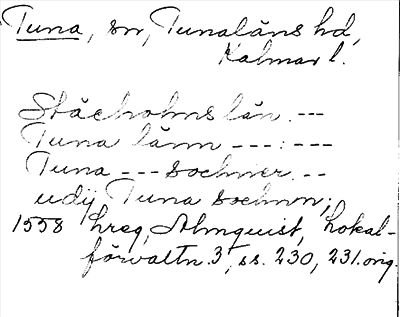 Tuna, sn, Tunaläns hd,
Kalmar l.
Stächolms län ---
Tuna länn ---:---
Tuna --- sochner --
udij Tuna sochnn;
1558 hreg, Almquist, Lokal-
förvaltn. 3, ss. 230, 231. orig.